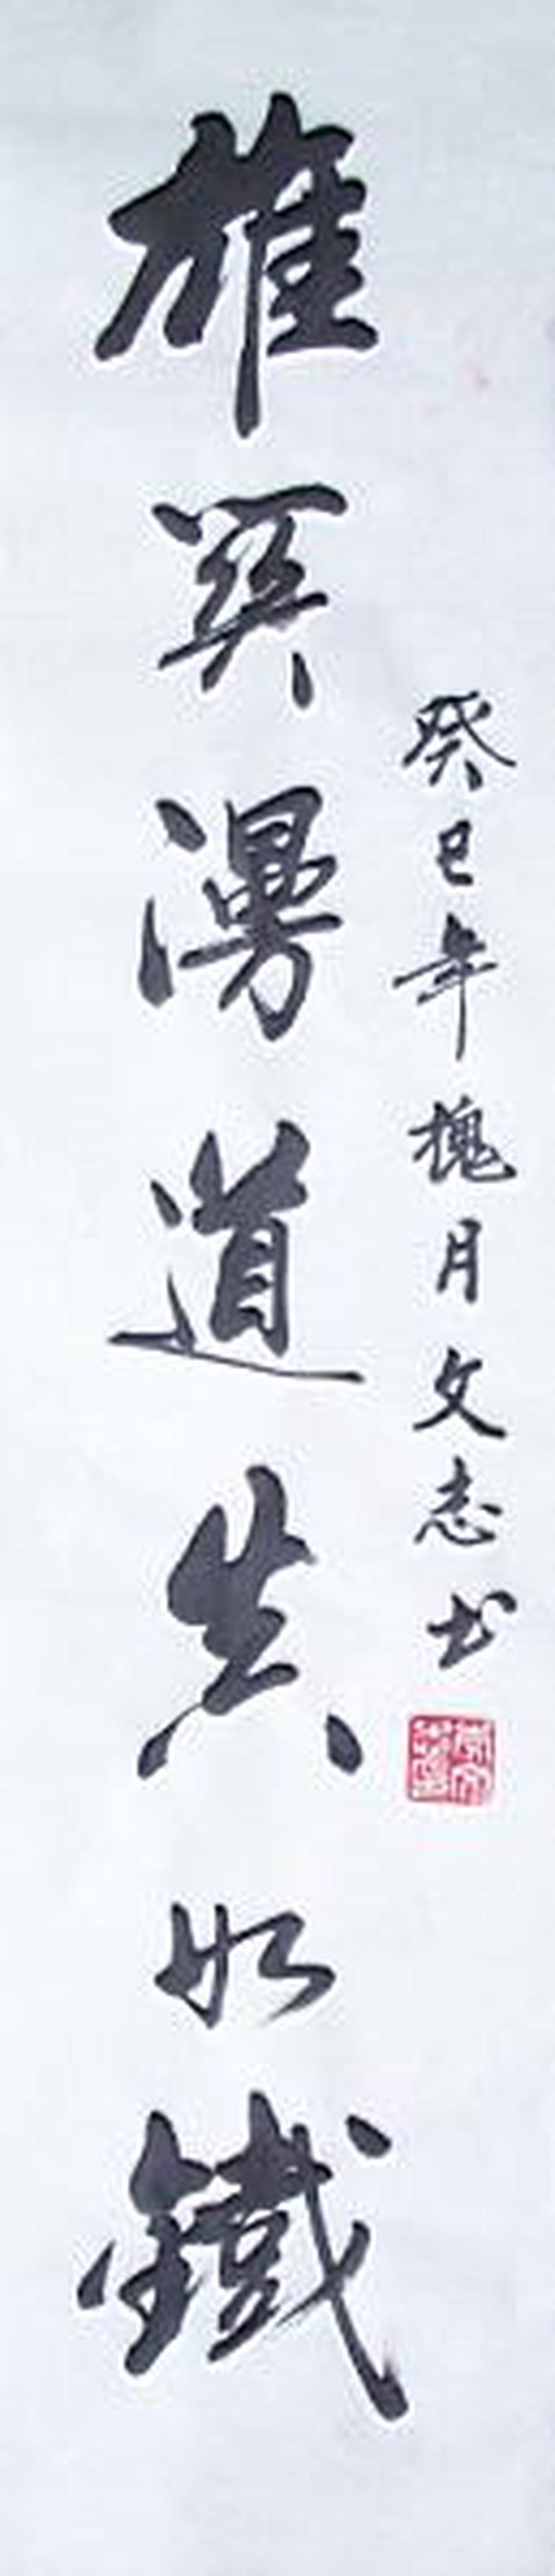 雄關漫道真如鐵
癸巳年槐月文志书